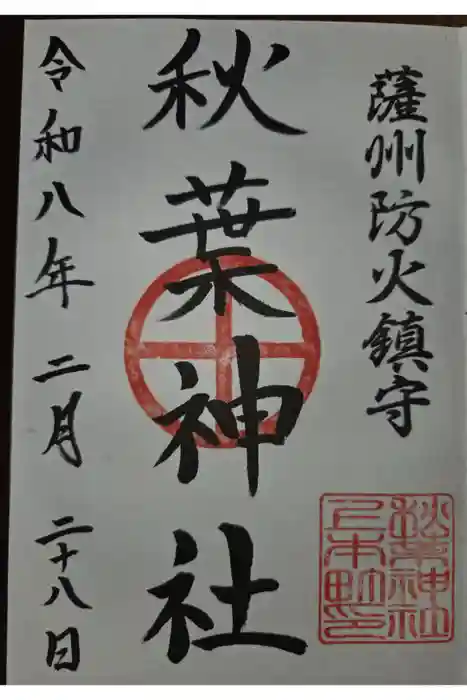 薩州防火鎮守
秋葉神社
令和八年二月二十八日
秋葉神社
上本町印